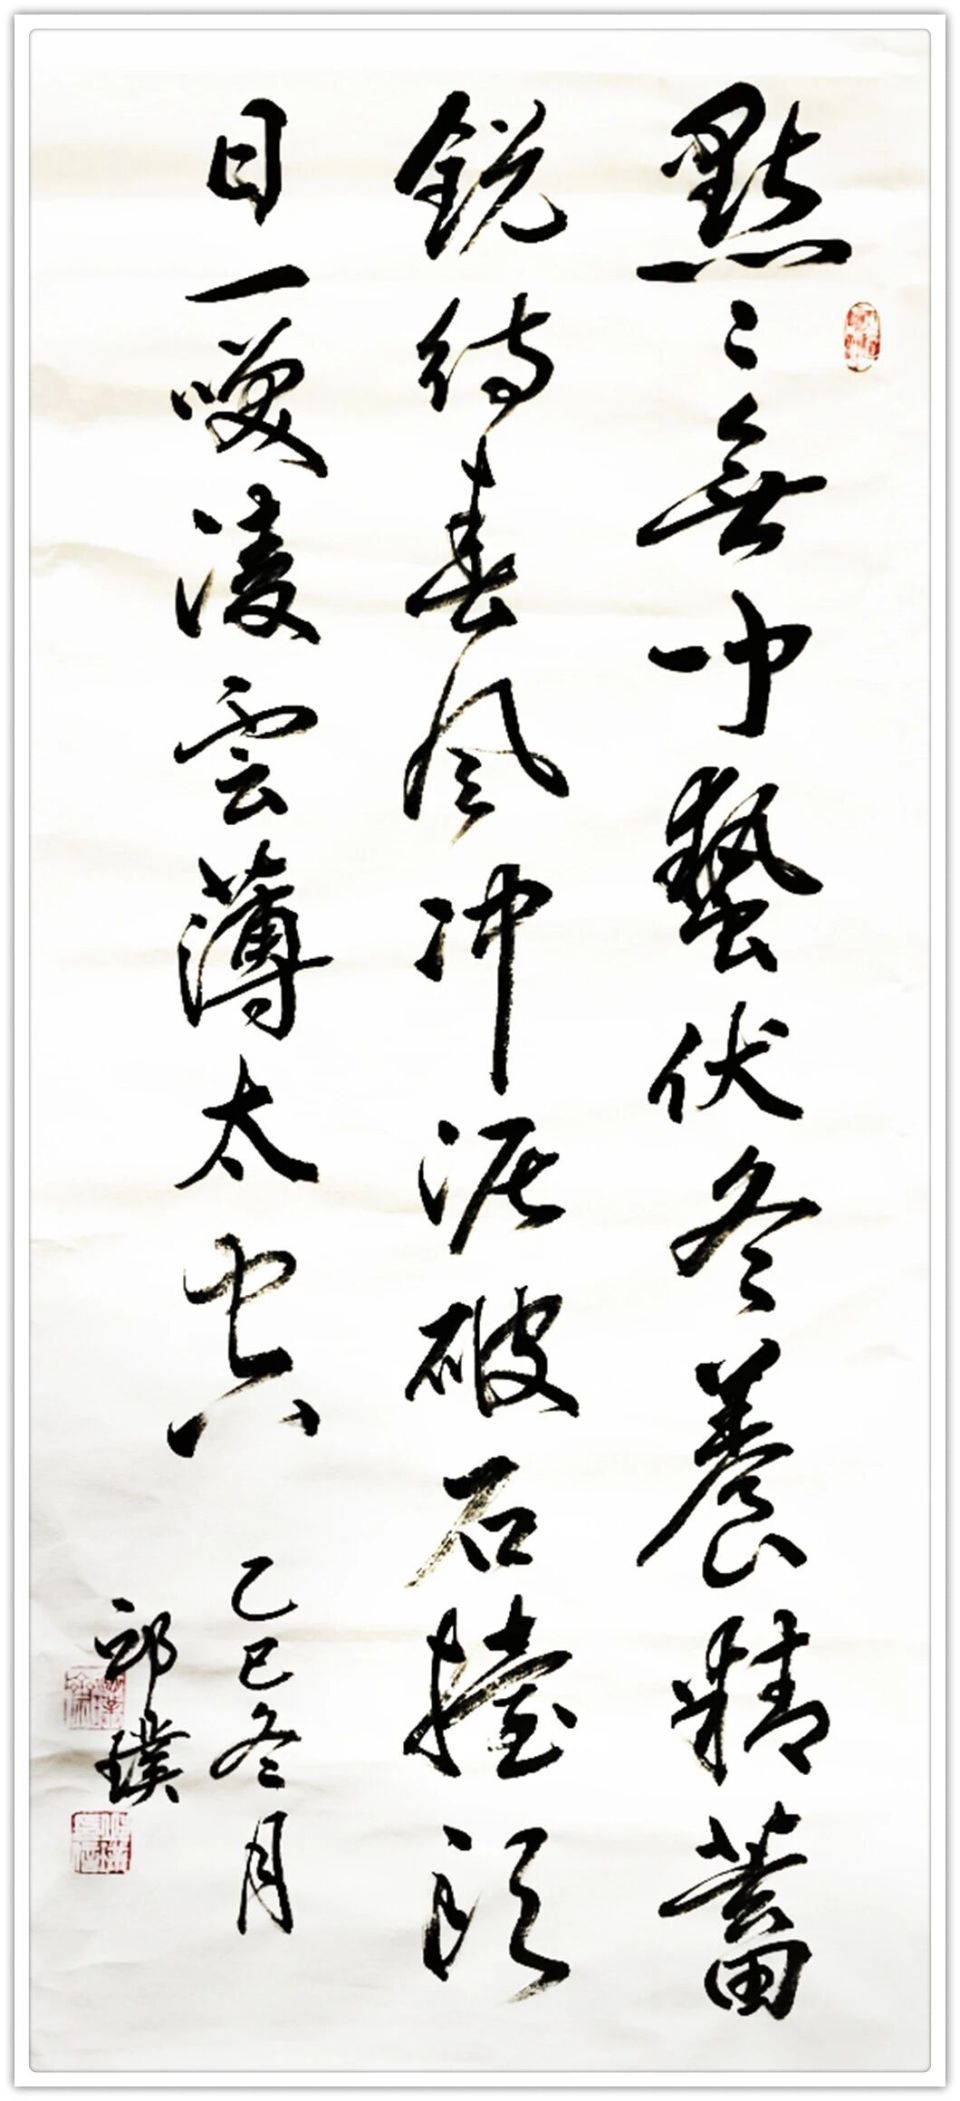 默〻無聞蟄伏冬養精蓄
銳待春風冲泥破石擡頭
日一凌雲薄太空
乙巳冬月
璞